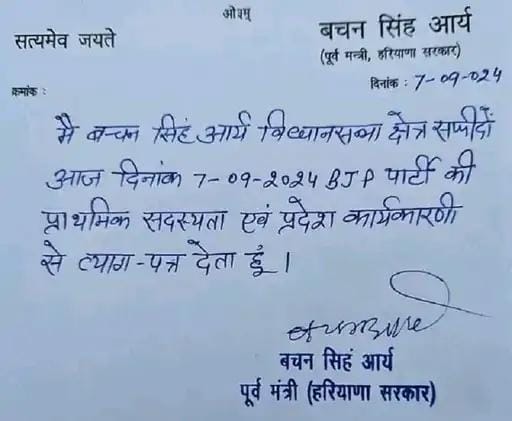 ओ३म्
सत्यमेव जयते
बचन सिंह आर्य
(पूर्व मन्त्री, हरियाणा सरकार)
क्रमांक :
दिनांक : 7-09-024
मै बच्चन सिंह आर्य विधानसभा क्षेत्र सफीदों
आज दिनांक 7-09-2024 BJP पार्टी की
प्राथमिक सदस्यता एवं प्रदेश कार्यकारणी
से त्याग-पत्र देता हूं ।
बचन सिहं आर्य
पूर्व मंत्री (हरियाणा सरकार)